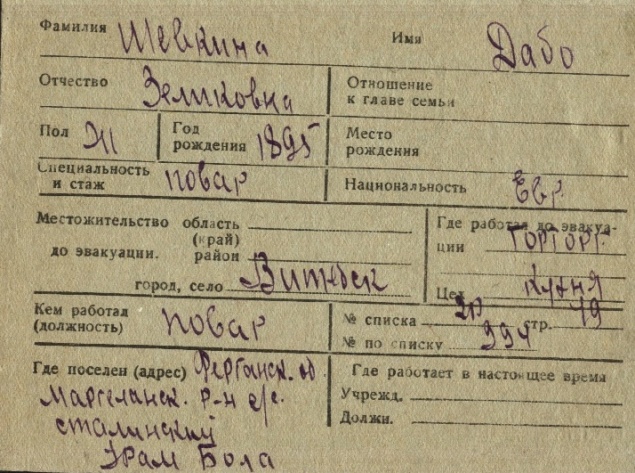 Фамилия Шевкина Имя Дабо
Отчество Зеликовна Отношение к главе семьи
Пол Ж Год рождения 1895 Место рождения
Специальность и стаж повар Национальность Евр.
Местожительство область
(край)
до эвакуации. район
город, село Витебск
Где работал до эвакуа-
ции горторг.
Цех кухня
Кем работал
(должность) повар
№ списка стр. 19
№ по списку 994
Где поселен (адрес) Ферганск. об
Маргеланск. р-н с/с.
сталинский
Урам Бола
Где работает в настоящее время
Учрежд.
Должн.